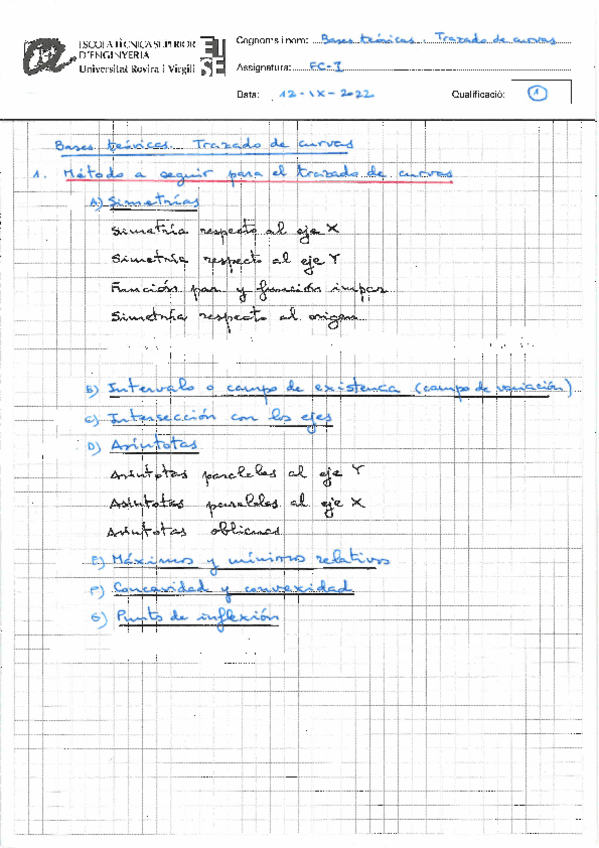 ESCOLA TÈCNICA SUPERIOR
D'ENGINYERIA
Universitat Rovira i Virgili
ETSE
Cognoms i nom: Bases teóricas. Trazado de curvas
Assignatura: FC-I
Data: 12-IX-2022
Qualificació: 1
Bases teóricas. Trazado de curvas
1. Método a seguir para el trazado de curvas
A) Simetrías
Simetría respecto al eje X
Simetría respecto al eje Y
Función par y función impar
Simetría respecto al origen
B) Intervalo o campo de existencia (campo de variación)
C) Intersección con los ejes
D) Asíntotas
Asíntotas paralelas al eje Y
Asíntotas paralelas al eje X
Asíntotas oblicuas
E) Máximos y mínimos relativos
F) Concavidad y convexidad
G) Punto de inflexión